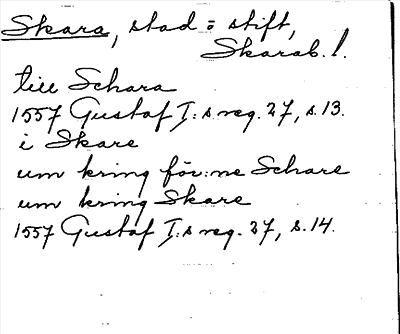 Skara, stad o stift,
Skarab. l.
till Schara
1557 Gustaf I:s reg. 27, s. 13.
i Skare
um kring för:ne Schare
um kring Skare
1557 Gustaf I:s reg. 27, s. 14.